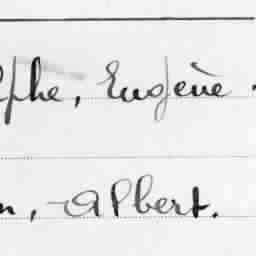 phe, Eugène.
n, Albert.